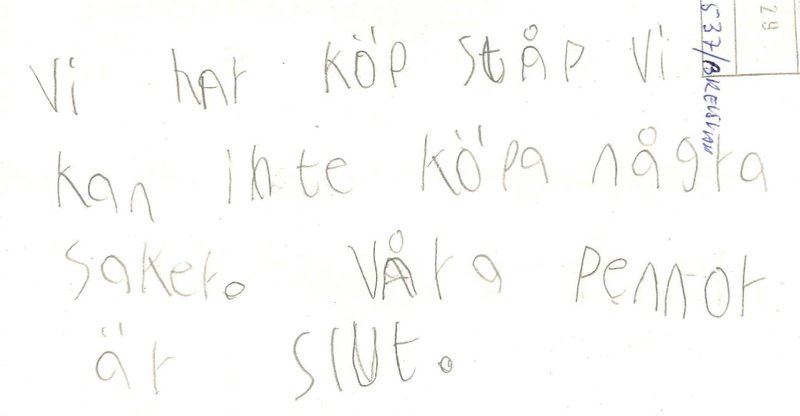 Vi har köp ståp vi
kan inte köpa några
saker. Våra pennor
är slut.
29